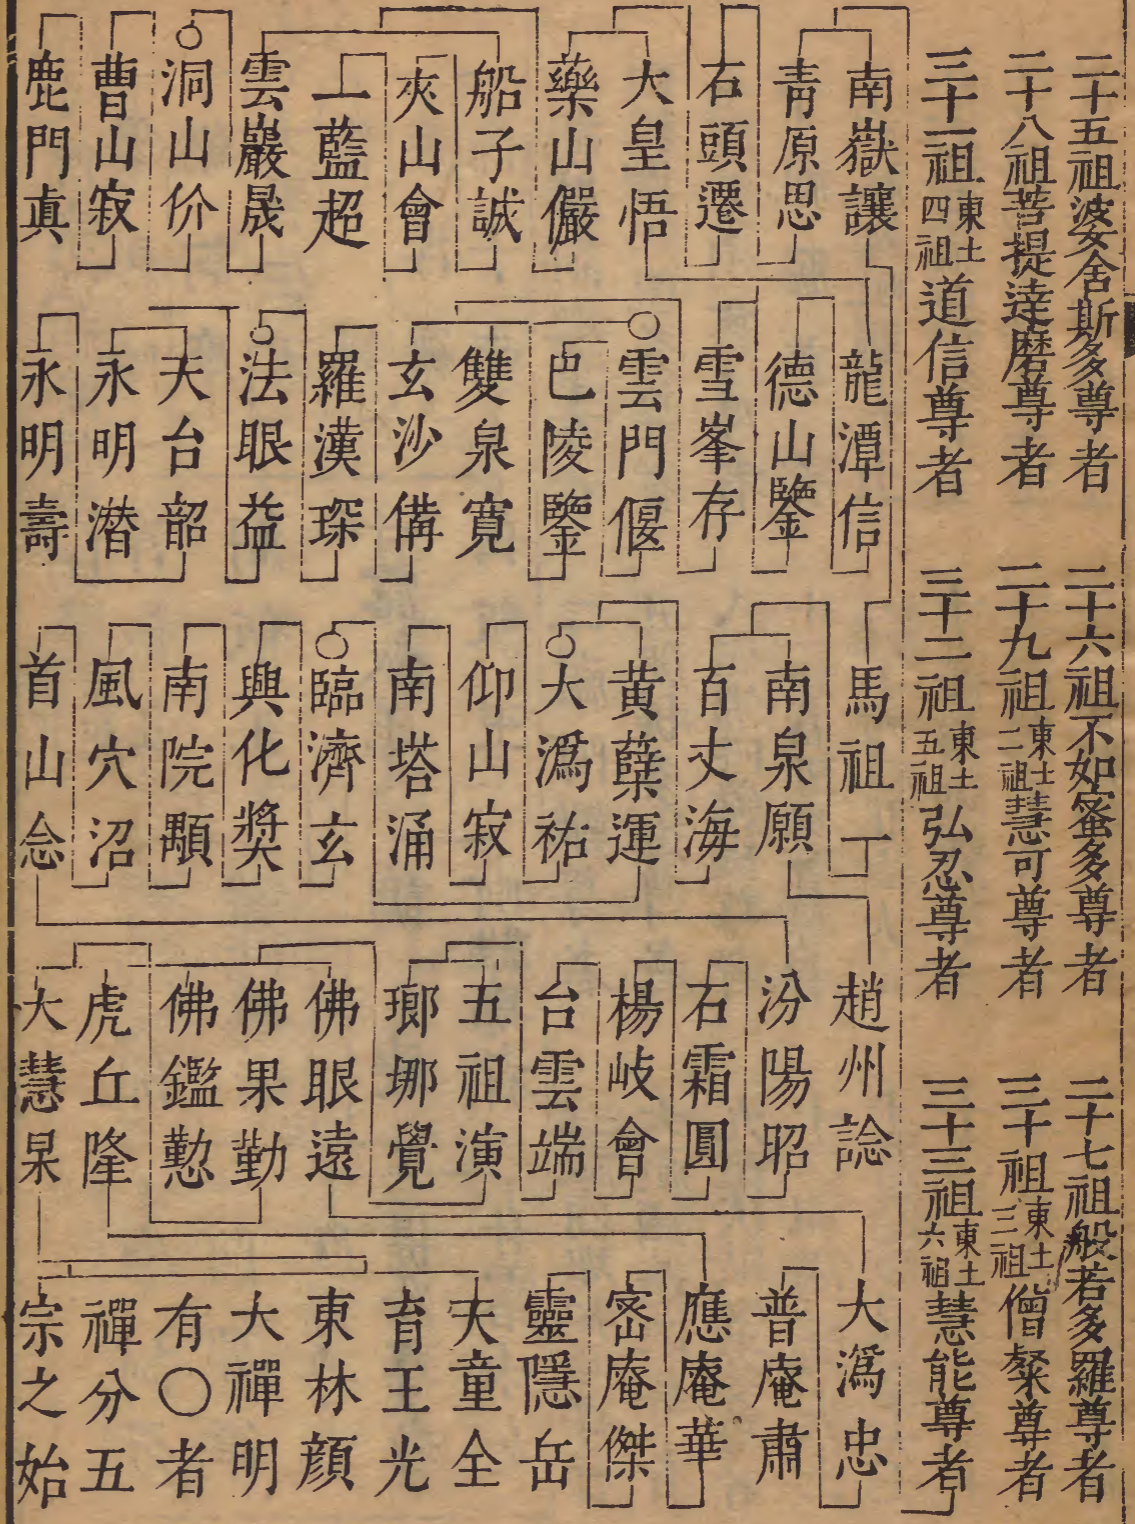 二十五祖婆舍斯多尊者
二十六祖不如蜜多尊者
二十七祖般若多羅尊者
二十八祖菩提達磨尊者
二十九祖東土二祖慧可尊者
三十祖東土三祖僧粲尊者
三十一祖東土四祖道信尊者
三十二祖東土五祖弘忍尊者
三十三祖東土六祖慧能尊者
南嶽讓
青原思
石頭遷
大皇悟
藥山儼
船子誠
夾山會
一藍超
雲巖晟
洞山价
曹山寂
鹿門真
龍潭信
德山鑒
雪峯存
雲門偃
巴陵鑒
雙泉寬
玄沙備
羅漢琛
法眼益
天台韶
永明潜
永明壽
馬祖一
南泉願
百丈海
黃蘗運
大潙祐
仰山寂
南塔涌
臨濟玄
興化奬
南院顒
風穴沼
首山念
趙州諗
汾陽昭
石霜圓
楊岐會
台雲端
五祖演
瑯琊覺
佛眼遠
佛果勤
佛鑑懃
虎丘隆
大慧杲
大潙忠
普庵肅
應庵華
密庵傑
靈隱岳
天童全
育王光
東林顔
大禪明
有〇者
禪分五
宗之始